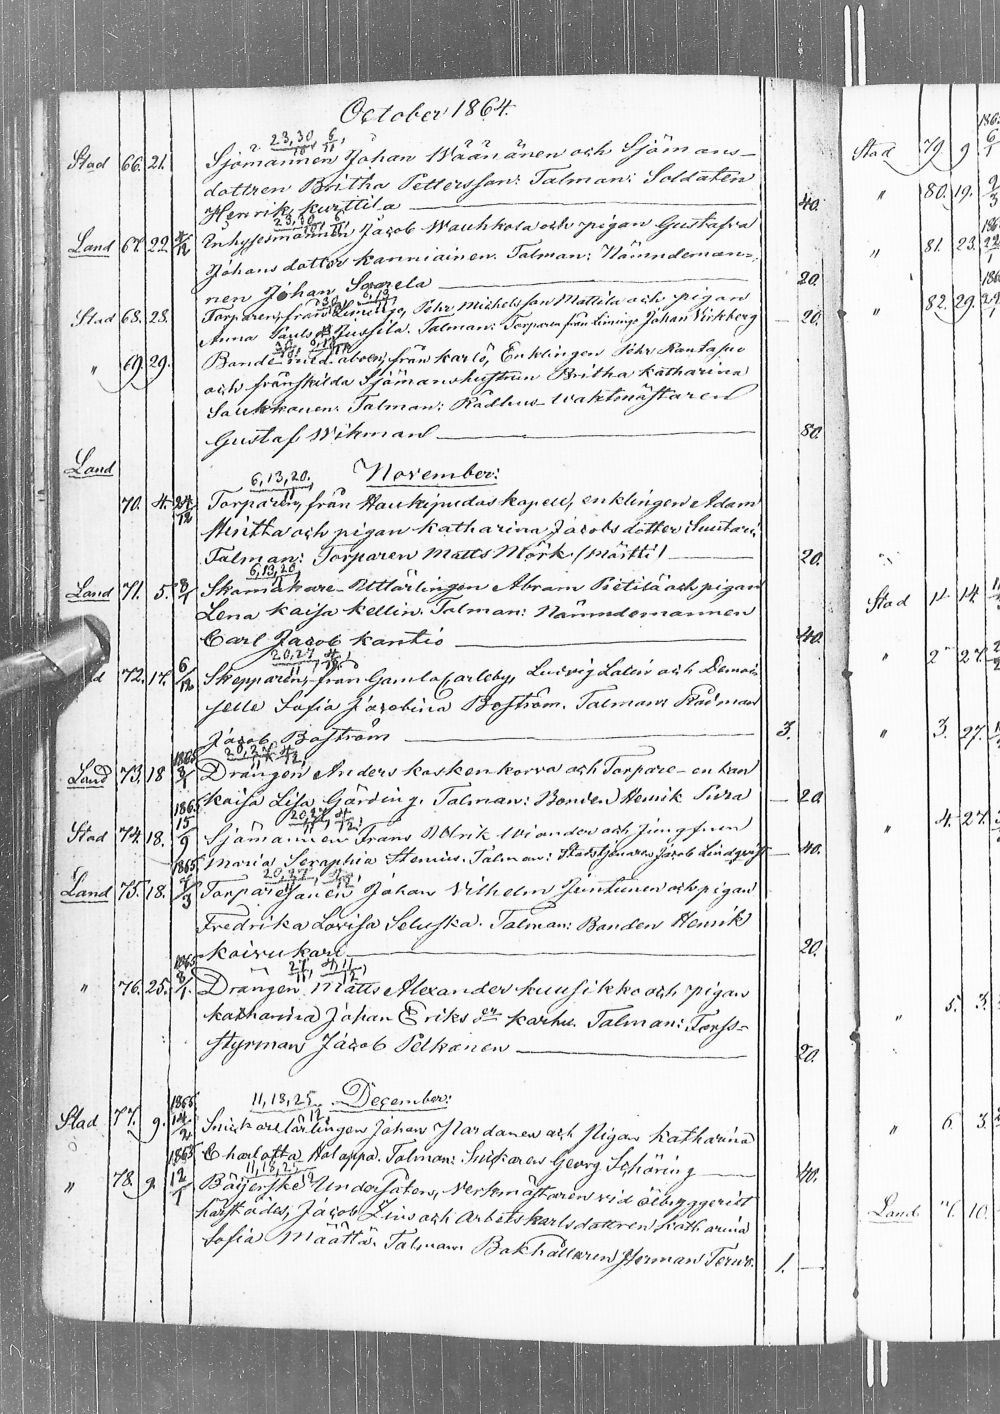 October 1864.
23,30, 6
10 11
Stad 66. 21. Sjömannen Johan Wäänänen och Sjömans-
dottren Britha Pettersson: Talman: Soldaten
Henrik Kurttila 40.
Land 67. 22 4/12 Inhysesmannen Jacob Wauhkola och pigan Gustafva
Johans dotter Kanniainen. Talman: Nämndeman-
nen Johan Saarela 20.
Stad 68. 28. Torparen, från Limingo, Petter Michelsson Mattila och pigan
Anna Pauls dr Jussila. Talman: Torparen från Limingo Johan Wickberg 20.
" 69. 29. från Karlö, Enklingen Pehr Rantasuo
och frånskilda Sjömanshustrun Britha Katharina
Saukkonen: Talman: Rådhus-waktmästaren
Gustaf Wikman 80.
Land
November:
6, 13, 20,
11
70. 4. 24/12 Torparen, från Haukipudas kapell, enklingen Adam
och pigan Katharina Jacobs dotter
Talman: Torparen Matts Mörk (Märtti) 20.
6,13,20,
11
Land 71. 5. 8/1 Skomakare- Uttlärlingen Abram Pietilä och pigan
Lena Kaisa Kellin. Talman: Nämndemannen
Carl Jacob Kantio 40.
20,27 4
11 12
72. 17. 6/12 Skepparen, från Gamla Carleby, Ludvig Dalén och Demoi-
selle Sofia Jacobina Boström. Talman: Rådman
Jacob Boström 3.
1865
20, 27 4
11 12
Land 73. 18 8/1 Drängen Anders Koskenkorva och Torpare-enkan
Kaisa Lisa Gärding. Talman: Bonden Henrik 20.
1865
20,27 4
11 12
Stad 74. 18. 15/9 Sjömannen Frans Ulrik Wiander och Jungfrun
Maria Seraphia Stenius. Talman: Stadstjenaren Jacob Lindqvist 40.
1865
20,27 4
11 12
Land 75. 18. 7/3 Torparesonen Johan Vilhelm Juntunen och pigan
Fredrika Lovisa Seluska. Talman: Bonden Henrik
Koivukari 20.
1865
27 4,11
11 12
" 76. 25. 8/1 Drängen Matts Alexander Kuusikko och Pigan
Katharina Johan Eriks dr Karhu. Talman: Forss-
styrman Jacob Pelkonen 20.
11, 18, 25. December:
12
1865
Stad 77. 9. 14/2 Snickarelärlingen Johan Nardanen och Pigan Katharina
Charlotta Holappa. Talman: Snickaren Georg Schöring 40.
1865
11, 18, 25
12
" 78. 9. 12/1 Baijerske Undersåten, Verkmästaren vid ölbryggeriet
härstädes, Jacob Zins och Arbetskarlsdottren Katharina
Sofia Määttä. Talman: Bokhållaren Herman 1. —
Stad 79 9 6/1
" 80. 19.
" 81. 23. 22/1
" 82. 29.
Stad 1. 14.
" 2 27.
" 3. 27.
" 4. 27.
" 5. 3.
" 6 3.
Land 7. 10.